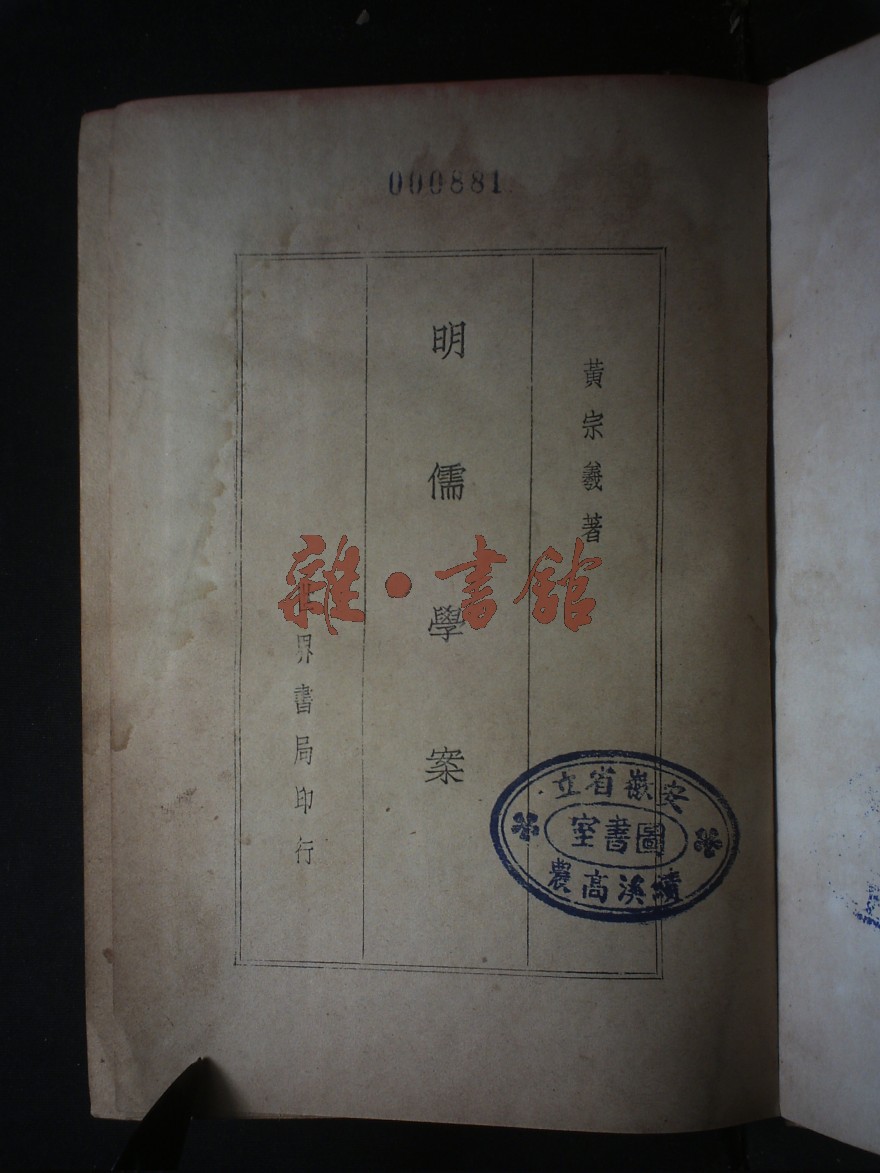 000881
黃宗羲著
明儒學案
世界書局印行
雜·書館
安徽省立
圖書室
績溪高農